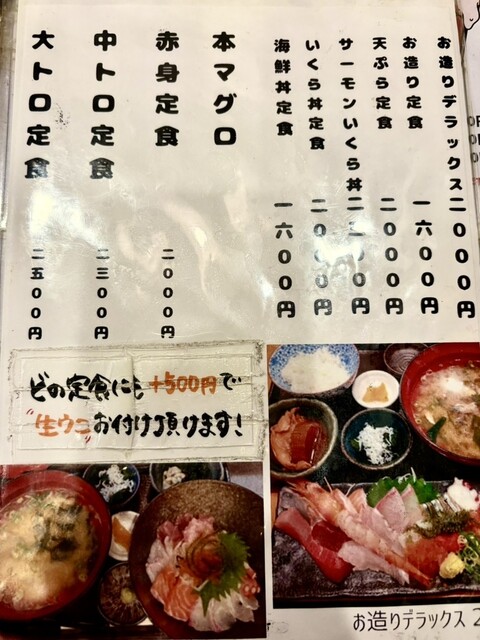 お造りデラックス二〇〇〇円
お造り定食 一六〇〇円
天ぷら定食 二〇〇〇円
サーモンいくら丼 二二〇〇円
いくら丼定食 二〇〇〇円
海鮮丼定食 一六〇〇円
本マグロ
赤身定食 二〇〇〇円
中トロ定食 二三〇〇円
大トロ定食 二五〇〇円
どの定食にも +500円で
"生ウニ"お付け頂けます!
お造りデラックス 2